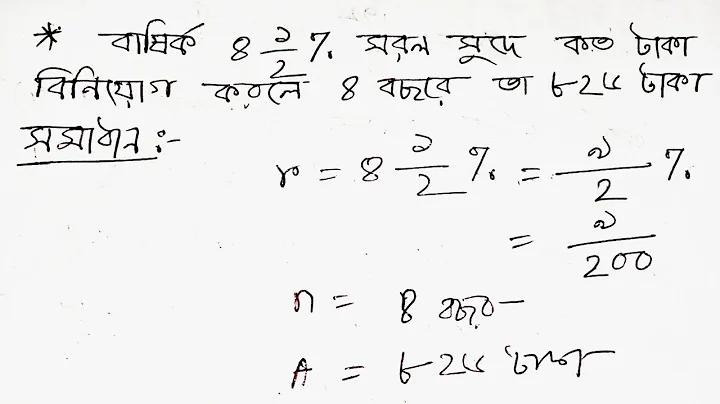 * বার্ষিক ৪ ১/২ % সরল সুদে কত টাকা
বিনিয়োগ করলে ৪ বছরে তা ৮২৬ টাকা
সমাধান :-
r = ৪ ১/২ % = ৯/২ %
= ৯/২০০
n = ৪ বছর
A = ৮২৬ টাকা